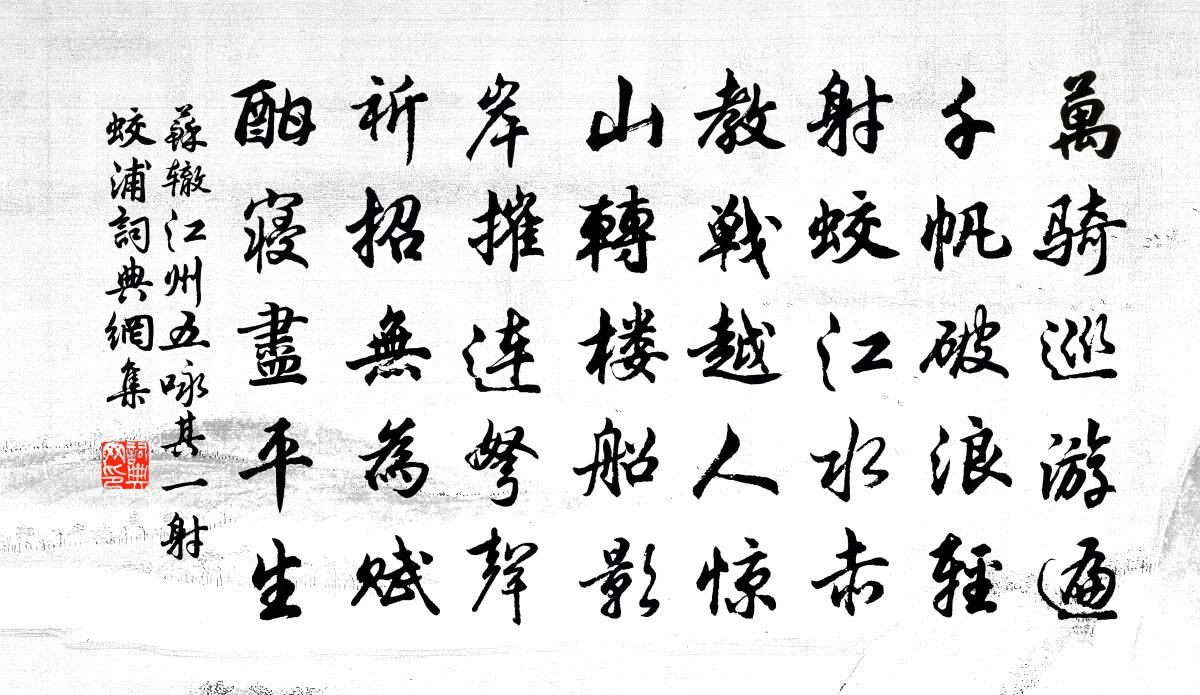 萬骑巡游遍
千帆破浪輕
射蛟江水赤
教戰越人惊
山轉楼船影
岸摧连弩聲
祈招無為赋
酣寝盡平生
蘇辙江州五咏其一射
蛟浦詞典網集
詞典